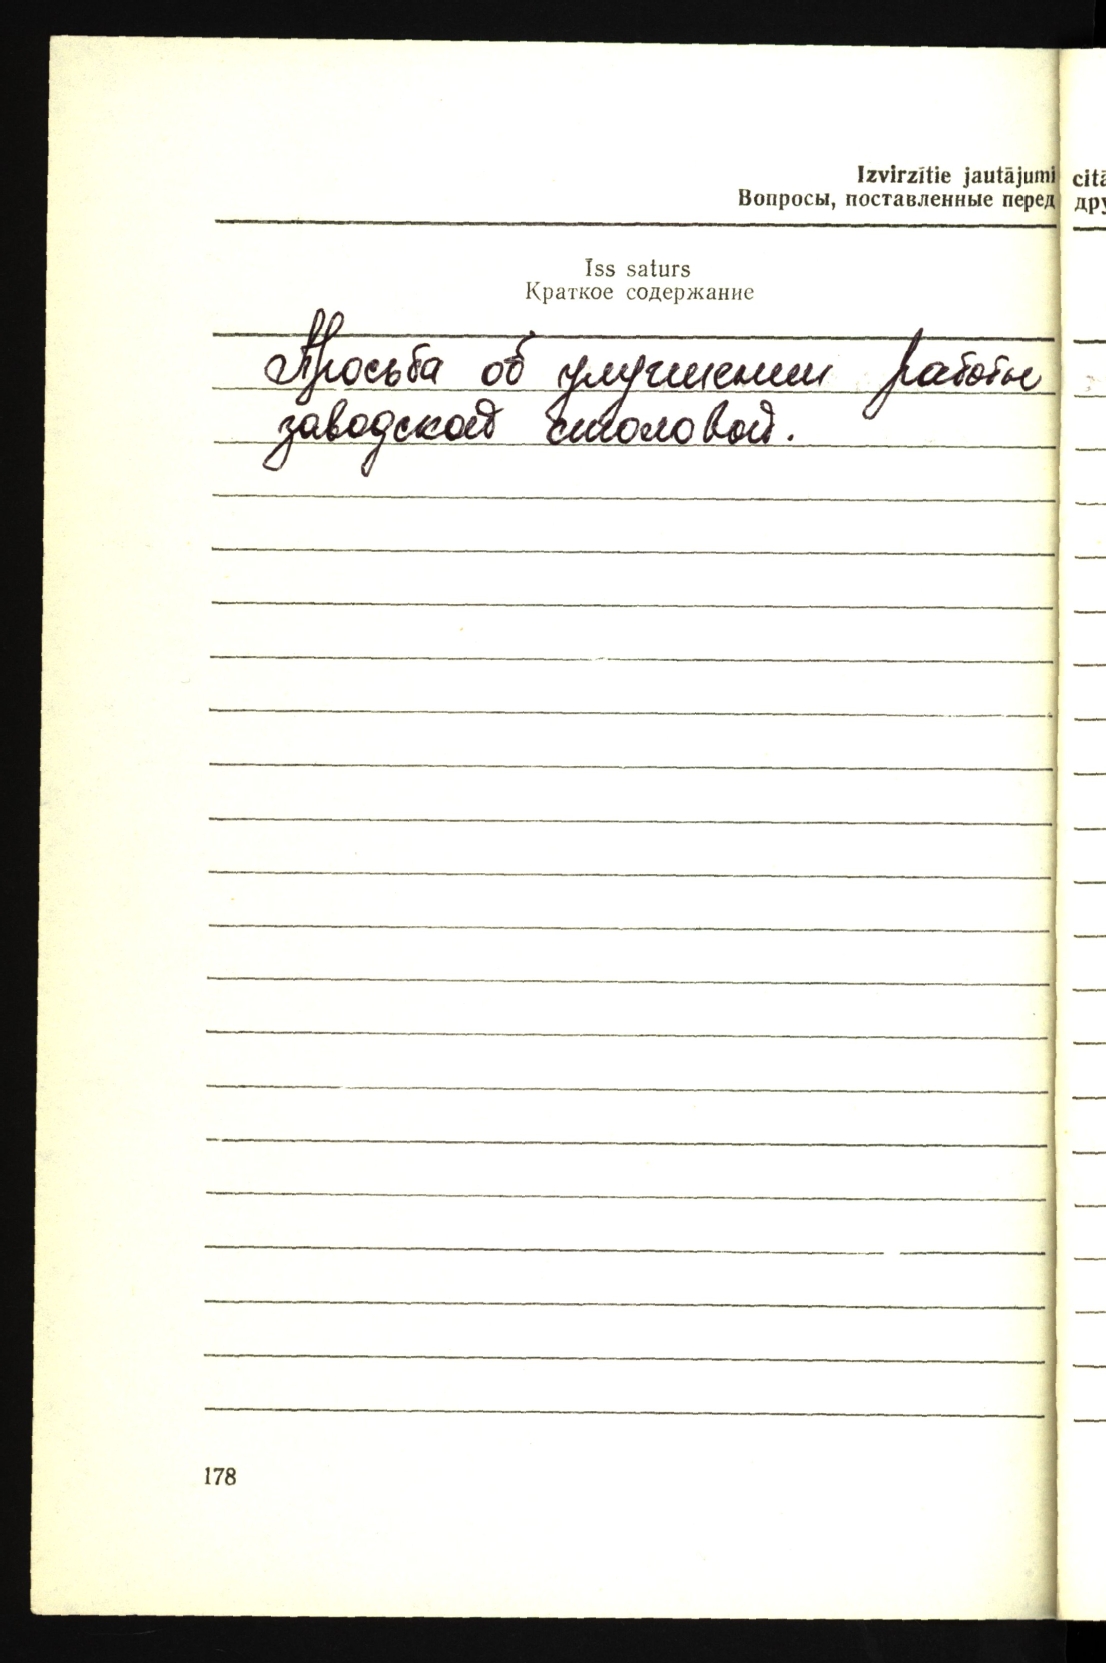 Izvirzītie jautājumi citā
Вопросы, поставленные перед дру
Īss saturs
Краткое содержание
Просьба об улучшении работы
заводской столовой.
178